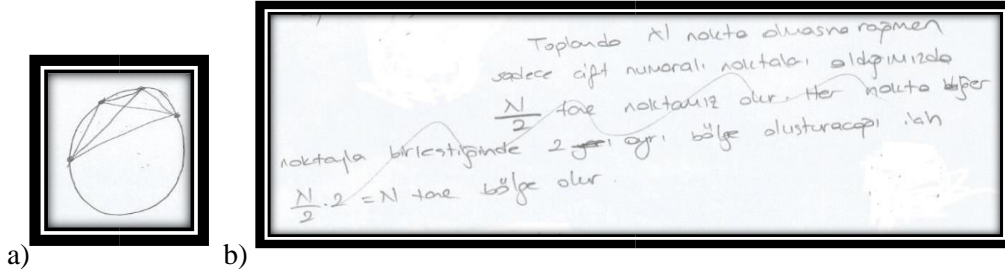 Toplamda N nokta olmasına rağmen
sadece çift numaralı noktaları aldığımızda
N/2 tane noktamız olur. Her nokta diğer
noktayla birleştiğinde 2 ayrı bölge oluşturacağı için
N/2 . 2 = N tane bölge olur.
a)
b)